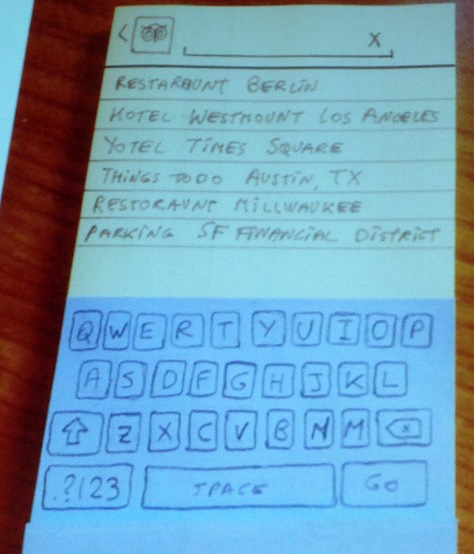 < X
RESTARAUNT BERLIN
HOTEL WESTMOUNT LOS ANGELES
YOTEL TIMES SQUARE
THINGS TO DO AUSTIN, TX
RESTORAUNT MILLWAUKEE
PARKING SF FINANCIAL DISTRICT
Q W E R T Y U I O P
A S D F G H J K L
Z X C V B N M X
.?123 SPACE GO